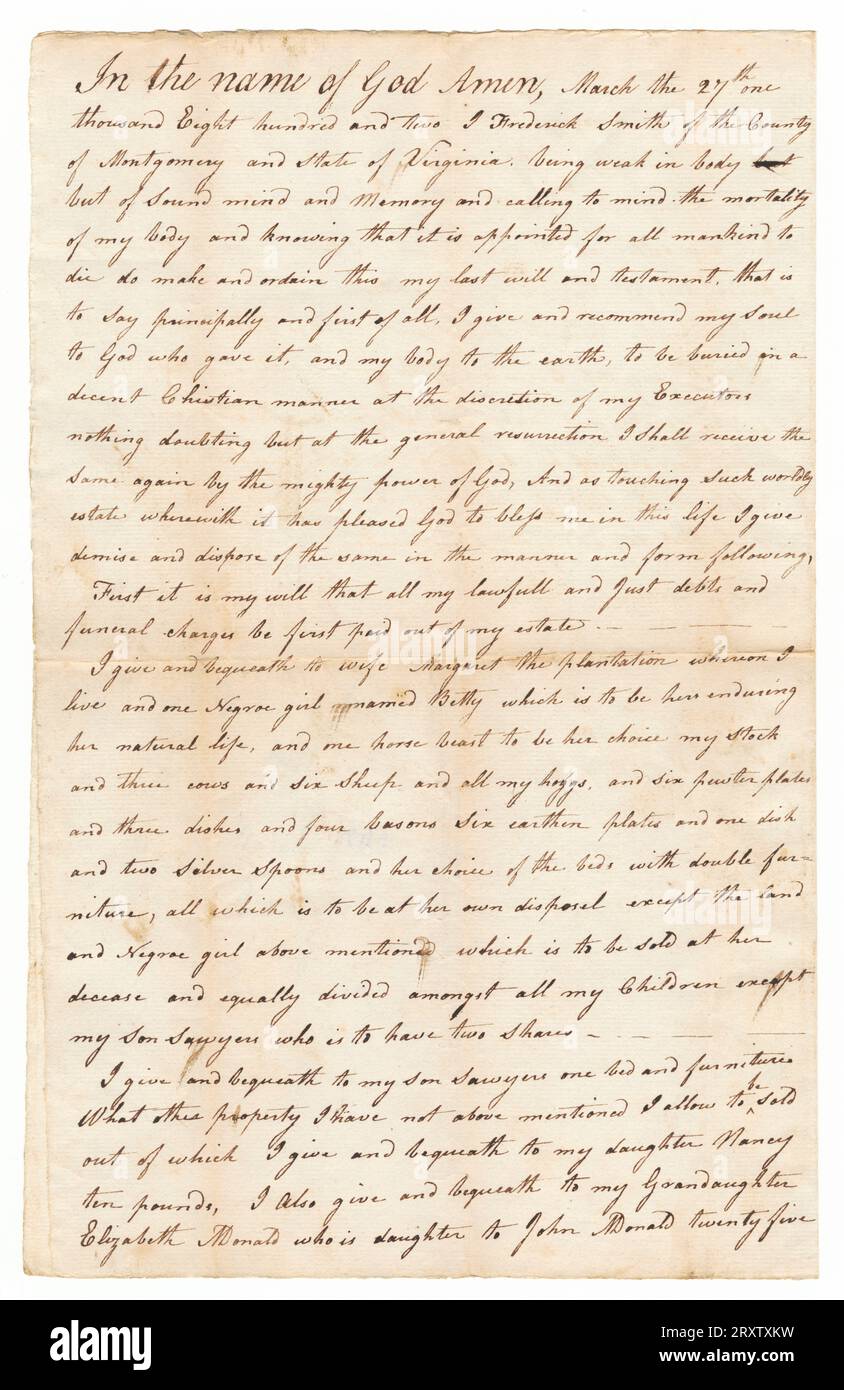 In the name of God Amen, March the 27th one
thousand Eight hundred and two I Frederick Smith of the County
of Montgomery and State of Virginia. being weak in body but
but of Sound mind and Memory and calling to mind the mortality
of my body and knowing that it is appointed for all mankind to
die do make and ordain this my last will and testament, that is
to say principally and first of all, I give and recommend my Soul
to God who gave it, and my body to the earth, to be buried in a
decent Christian manner at the discretion of my Executors
nothing doubting but at the general resurrection I Shall receive the
same again by the mighty power of God, And as touching such worldly
estate wherewith it has pleased God to bless me in this life I give
demise and dispose of the same in the manner and form following,
First it is my will that all my lawfull and Just debts and
funeral charges be first paid out of my estate. — — —
I give and bequeath to wife Margaret the plantation whereon I
live and one Negroe girl named Betty which is to be hers enduring
her natural life, and one horse beast to be her choice my stock
and three cows and six Sheep and all my hoggs, and six pewter plates
and three dishes and four basons Six earthen plates and one dish
and two Silver Spoons and her choice of the beds with double fur=
niture, all which is to be at her own disposel except the land
and Negroe girl above mentioned which is to be sold at her
decease and equally divided amongst all my Children except
my Son Sawyers who is to have two Shares — — — —
I give and bequeath to my son Sawyers one bed and furniture
What other property I Have not above mentioned I allow to be Sold
out of which I give and bequeath to my daughter Nancy
ten pounds, I Also give and bequeath to my Grandaughter
Elizabeth McDonald who is daughter to John McDonald twenty five
alamy
Image ID: 2RXTXKW
www.alamy.com